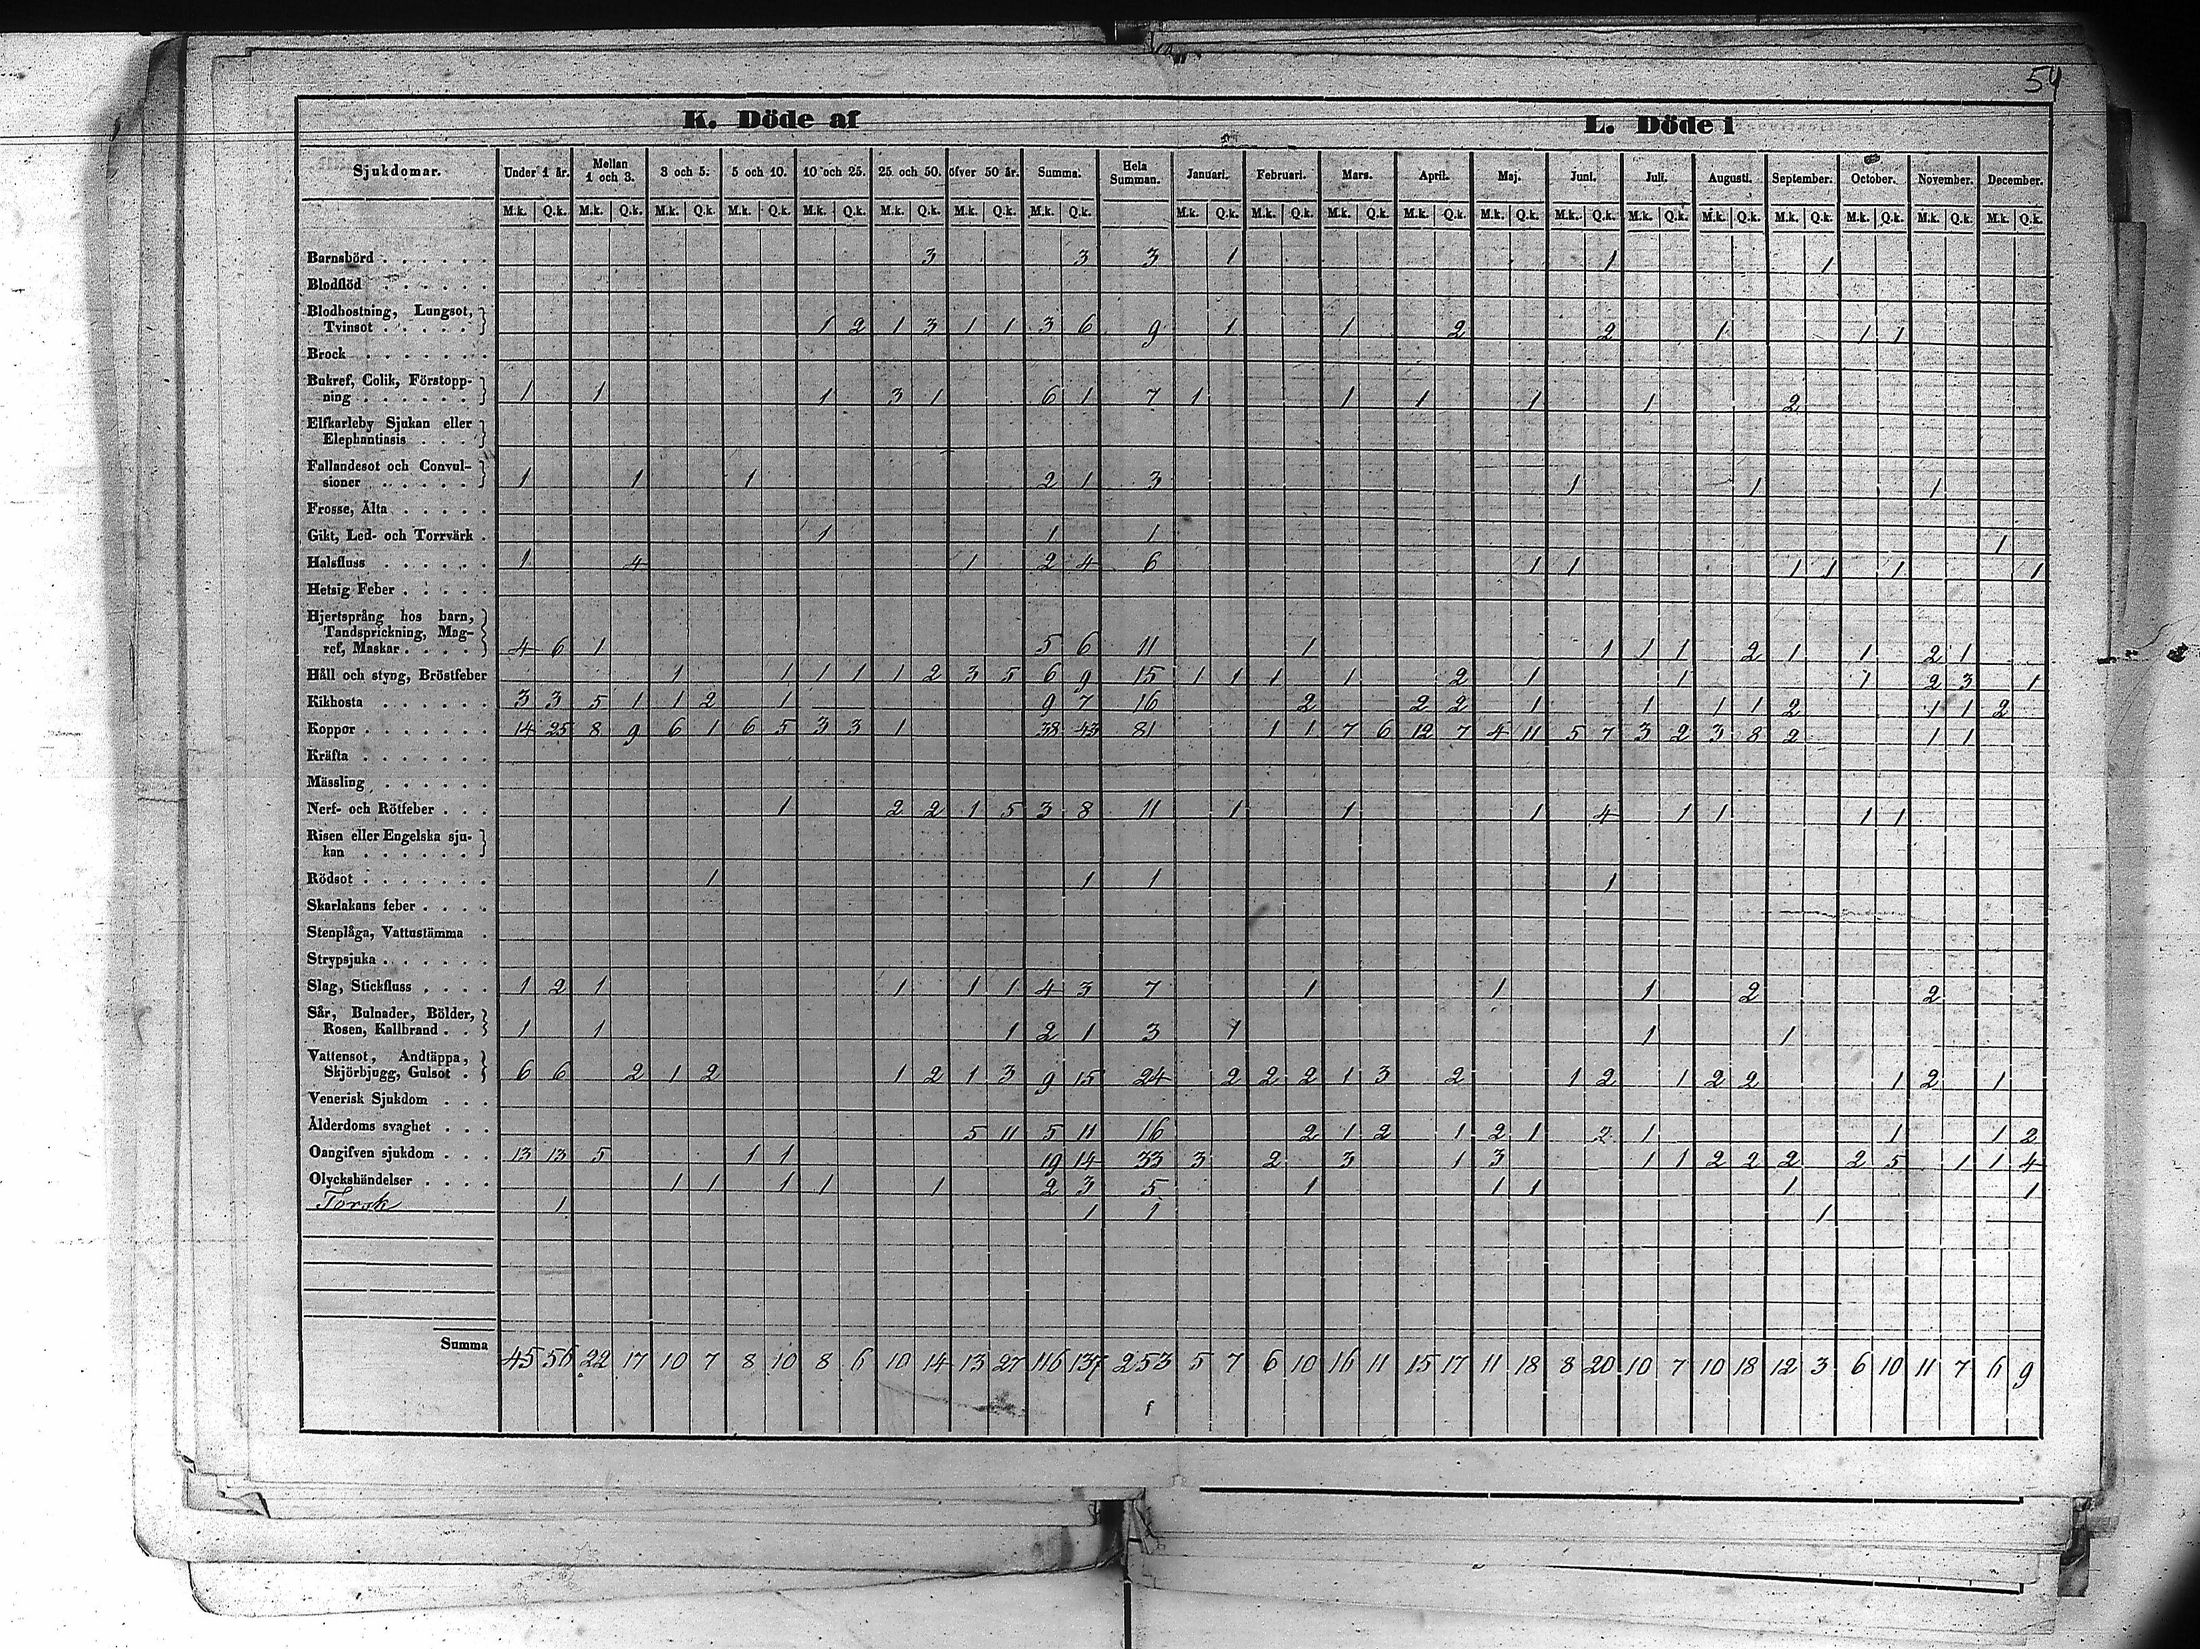 54
K. Döde af L. Döde i
Sjukdomar. Under 1 år. Mellan 1 och 3. 3 och 5. 5 och 10. 10 och 25. 25 och 50. öfver 50 år. Summa. Hela Summan. Januari. Februari. Mars. April. Maj. Juni. Juli. Augusti. September. October. November. December.
M.k. Q.k. M.k. Q.k. M.k. Q.k. M.k. Q.k. M.k. Q.k. M.k. Q.k. M.k. Q.k. M.k. Q.k. M.k. Q.k. M.k. Q.k. M.k. Q.k. M.k. Q.k. M.k. Q.k. M.k. Q.k. M.k. Q.k. M.k. Q.k. M.k. Q.k. M.k. Q.k. M.k. Q.k. M.k. Q.k.
Barnsbörd 3 3 3 1 1 1
Blodflöd
Blodhostning, Lungsot,
Tvinsot 1 2 1 3 1 1 3 6 9 1 1 2 2 1 1 1
Brock
Bukref, Colik, Förstopp-
ning 1 1 1 3 1 6 1 7 1 1 1 1 1 2
Elfkarleby Sjukan eller
Elephantiasis
Fallandesot och Convul-
sioner 1 1 1 2 1 3 1 1 1
Frosse, Älta
Gikt, Led- och Torrvärk 1 1 1 1
Halsfluss 1 4 1 2 4 6 1 1 1 1 1 1
Hetsig Feber
Hjertsprång hos barn,
Tandsprickning, Mag-
ref, Maskar 4 6 1 5 6 11 1 1 1 1 2 1 1 2 1
Håll och styng, Bröstfeber 1 1 1 1 1 2 3 5 6 9 15 1 1 1 1 2 1 1 1 2 3 1
Kikhosta 3 3 5 1 1 2 1 9 7 16 2 2 2 1 1 1 1 2 1 1 2
Koppor 14 25 8 9 6 1 6 5 3 3 1 38 43 81 1 1 7 6 12 7 4 11 5 7 3 2 3 8 2 1 1
Kräfta
Mässling
Nerf- och Rötfeber 1 2 2 1 5 3 8 11 1 1 1 4 1 1 1 1
Risen eller Engelska sju-
kan
Rödsot 1 1 1 1
Skarlakans feber
Stenplåga, Vattustämma
Strypsjuka
Slag, Stickfluss 1 2 1 1 1 1 4 3 7 1 1 1 2 2
Sår, Bulnader, Bölder,
Rosen, Kallbrand 1 1 1 2 1 3 1 1 1
Vattensot, Andtäppa,
Skjörbjugg, Gulsot 6 6 2 1 2 1 2 1 3 9 15 24 2 2 2 1 3 2 1 2 1 2 2 1 2 1
Venerisk Sjukdom
Ålderdoms svaghet 5 11 5 11 16 2 1 2 1 2 1 2 1 1 1 2
Oangifven sjukdom 13 13 5 1 1 19 14 33 3 2 3 1 3 1 1 2 2 2 2 5 1 1 4
Olyckshändelser 1 1 1 1 1 2 3 5 1 1 1 1 1
Torsk 1 1 1 1
Summa 45 56 22 17 10 7 8 10 8 6 10 14 13 27 116 137 253 5 7 6 10 16 11 15 17 11 18 8 20 10 7 10 18 12 3 6 10 11 7 6 9